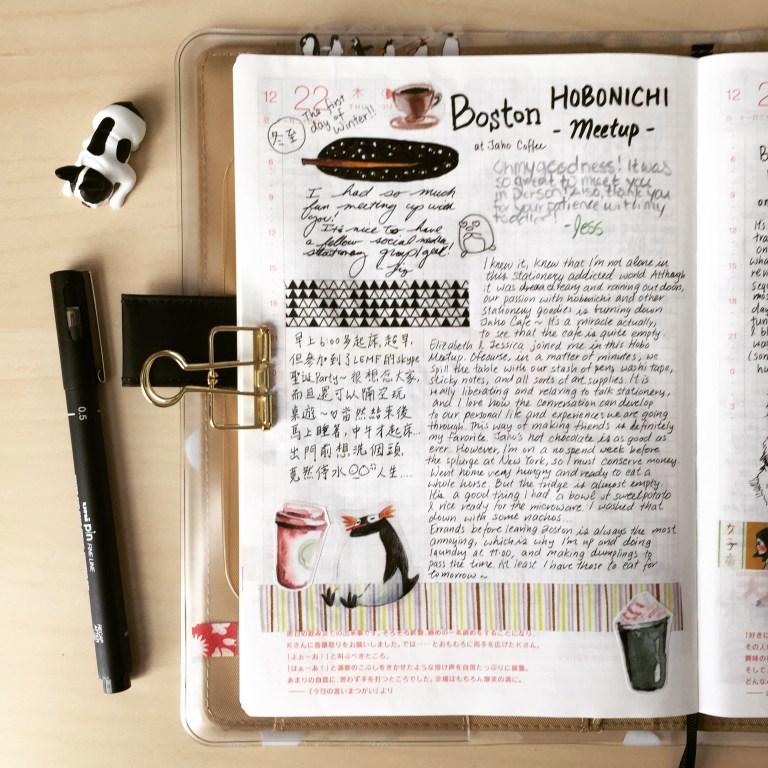 12
22
木
THU
冬至
The first
day of
winter!!
Boston HOBONICHI
- Meetup -
at Jaho Coffee
Oh my goodness! It was
so great to meet you
in person! Also, thank you
for your patience with my
toddler!!
- Jess
I had so much
fun meeting up with
you!
It's nice to have
a fellow social media
stationary
早上6:00多起床,超早,
但參加到了LEMF的skype
聖誕Party~很想念大家,
而且還可以隔空玩
桌遊~當然結束後
馬上睡著,中午才起床...
出門前想洗個頭,
竟然停水 人生....
I knew it, knew that I'm not alone in
this stationery addicted world. Although
it was dreary and raining outdoor,
our passion with hobonichi and other
stationery goodies is burning down
Jaho Cafe ~ It's a miracle actually,
to see that the cafe is quite empty.
Elizabeth & Jessica joined me in this Hobo
Meetup. Ofcourse, in a matter of minutes, we
spill the table with our stash of pens, washi tape,
sticky notes, and all sorts of art supplies. It is
really liberating and relaxing to talk stationery,
and I love how the conversation can develop
to our personal life and experiences we are going
through. This way of making friends is definitely
my favorite. Jaho's hot chocolate is as good as
ever. However, I'm on a no spend week before
the splurge at New York, so I must conserve money.
Went home very hungry and ready to eat a
whole horse. But the fridge is almost empty.
It's a good thing I had a bowl of sweet potato
& rice ready for the microwave. I washed that
down with some nachos...
Errands before leaving Boston is always the most
annoying, which is why I'm up and doing
laundry at 11:00, and making dumplings to
pass the time. At least I have those to eat for
tomorrow ~
Kさんに音頭取りをお願いしました。では……とおもむろに両手を広げたKさん。
「よぉーお!」と叫ぶべきところ、
「はぁーあ!」と演歌のこぶしをきかせたような掛け声を自信たっぷりに披露。
あまりの自信に、思わず手を打つところでした。会場はもちろん爆笑の渦に。
──『今日の言いまつがい』より
0.5
uni pin FINE LINE
12